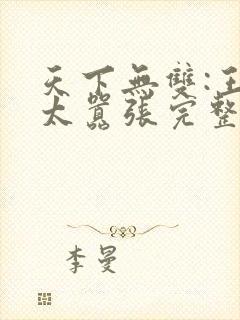 天下無雙:王
太囂張完整
李曼